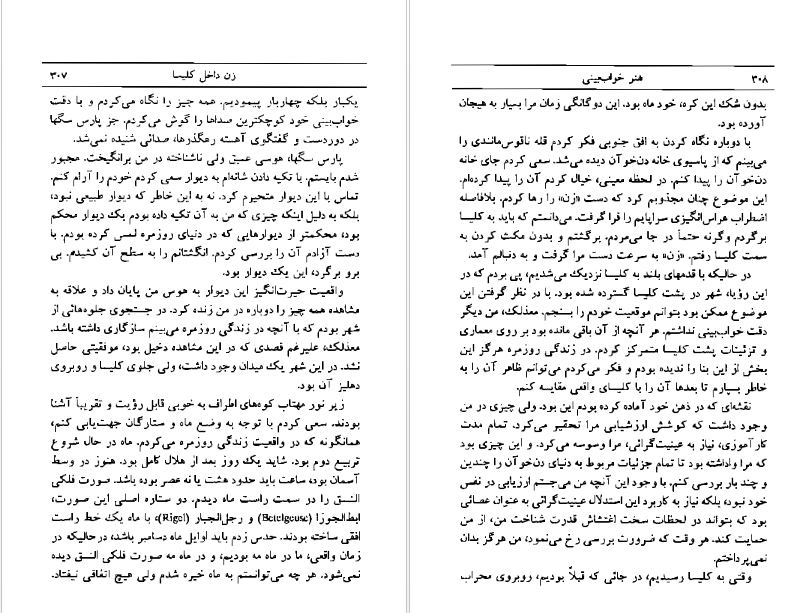 زن داخل کلیسا ۳۰۷
یکبار بلکه چهاربار پیمودیم. همه چیز را نگاه می‌کردم و با دقت
خواب‌بینی خود کوچکترین صداها را گوش می‌کردم. جز پارس سگها
در دوردست و گفتگوی آهسته رهگذرها، صدائی شنیده نمی‌شد.
پارس سگها، هوسی عمیق ولی ناشناخته در من برانگیخت. مجبور
شدم بایستم. با تکیه دادن شانه‌ام به دیوار سعی کردم خودم را آرام کنم.
تماس با این دیوار متحیرم کرد. نه به این خاطر که دیوار طبیعی نبود،
بلکه به دلیل اینکه چیزی که من به آن تکیه داده بودم یک دیوار محکم
بود، محکمتر از دیوارهایی که در دنیای روزمره لمس کرده بودم. با
دست آزادم آن را بررسی کردم. انگشتانم را به سطح آن کشیدم. بی
برو برگرد، این یک دیوار بود.
واقعیت حیرت‌انگیز این دیوار به هوس من پایان داد و علاقه به
مشاهده همه چیز را دوباره در من زنده کرد. در جستجوی جلوه‌هائی از
شهر بودم که با آنچه در زندگی روزمره می‌بینم سازگاری داشته باشد.
معذلک، علیرغم قصدی که در این مشاهده دخیل بود، موفقیتی حاصل
نشد. در این شهر یک میدان وجود داشت، ولی جلوی کلیسا و روبروی
دهلیز آن بود.
زیر نور مهتاب کوه‌های اطراف به خوبی قابل رؤیت و تقریباً آشنا
بودند. سعی کردم با توجه به وضع ماه و ستارگان جهت‌یابی کنم،
همانگونه که در واقعیت زندگی روزمره می‌کردم. ماه در حال شروع
تربیع دوم بود. شاید یک روز بعد از هلال کامل بود. هنوز در وسط
آسمان بود، ساعت باید حدود هشت یا نه عصر بوده باشد. صورت فلکی
النسق را در سمت راست ماه دیدم. دو ستاره اصلی این صورت،
ابط‌الجوزا (Betelgeuse) و رجل‌الجبار (Rigel)، با ماه یک خط راست
افقی ساخته بودند. حدس زدم باید اوایل ماه دسامبر باشد، در حالیکه در
زمان واقعی، ما در ماه مه بودیم، و در ماه مه صورت فلکی النسق دیده
نمی‌شود. هر چه می‌توانستم به ماه خیره شدم ولی هیچ اتفاقی نیفتاد.
۳۰۸ هنر خواب‌بینی
بدون شک این کره، خود ماه بود. این دوگانگی زمان مرا بسیار به هیجان
آورده بود.
با دوباره نگاه کردن به افق جنوبی فکر کردم قله ناقوس‌مانندی را
می‌بینم که از پاسیوی خانه دن‌خوآن دیده می‌شد. سعی کردم جای خانه
دن‌خوآن را پیدا کنم. در لحظه معینی، خیال کردم آن را پیدا کرده‌ام.
این موضوع چنان مجذوبم کرد که دست «زن» را رها کردم. بلافاصله
اضطراب هراس‌انگیزی سراپایم را فرا گرفت. می‌دانستم که باید به کلیسا
برگردم وگرنه حتماً در جا می‌مردم. برگشتم و بدون مکث کردن به
سمت کلیسا رفتم. «زن» به سرعت دست مرا گرفت و به دنبالم آمد.
در حالیکه با قدمهای بلند به کلیسا نزدیک می‌شدیم، پی بردم که در
این رؤیا، شهر در پشت کلیسا گسترده شده بود. با در نظر گرفتن این
موضوع ممکن بود بتوانم موقعیت خودم را بسنجم. معذلک، من دیگر
دقت خواب‌بینی نداشتم. هر آنچه از آن باقی مانده بود بر روی معماری
و تزئینات پشت کلیسا متمرکز کردم. در زندگی روزمره هرگز این
بخش از این بنا را ندیده بودم و فکر می‌کردم می‌توانم ظاهر آن را به
خاطر بسپارم تا بعدها آن را با کلیسای واقعی مقایسه کنم.
نقشه‌ای که در ذهن خود آماده کرده بودم این بود. ولی چیزی در من
وجود داشت که کوشش ارزشیابی مرا تحقیر می‌کرد. تمام مدت
کارآموزی، نیاز به عینیت‌گرائی، مرا وسوسه می‌کرد. و این چیزی بود
که مرا واداشته بود تا تمام جزئیات مربوط به دنیای دن‌خوآن را چندین
و چند بار بررسی کنم. با وجود این آنچه من می‌جستم ارزیابی در نفس
خود نبود، بلکه نیاز به کاربرد این استدلال عینیت‌گرائی به عنوان عصائی
بود که بتواند در لحظات سخت اغتشاش قدرت شناخت من، از من
حمایت کند. هر وقت که ضرورت بررسی رخ می‌نمود، من هرگز بدان
نمی‌پرداختم.
وقتی به کلیسا رسیدیم، در جائی که قبلاً بودیم، روبروی محراب